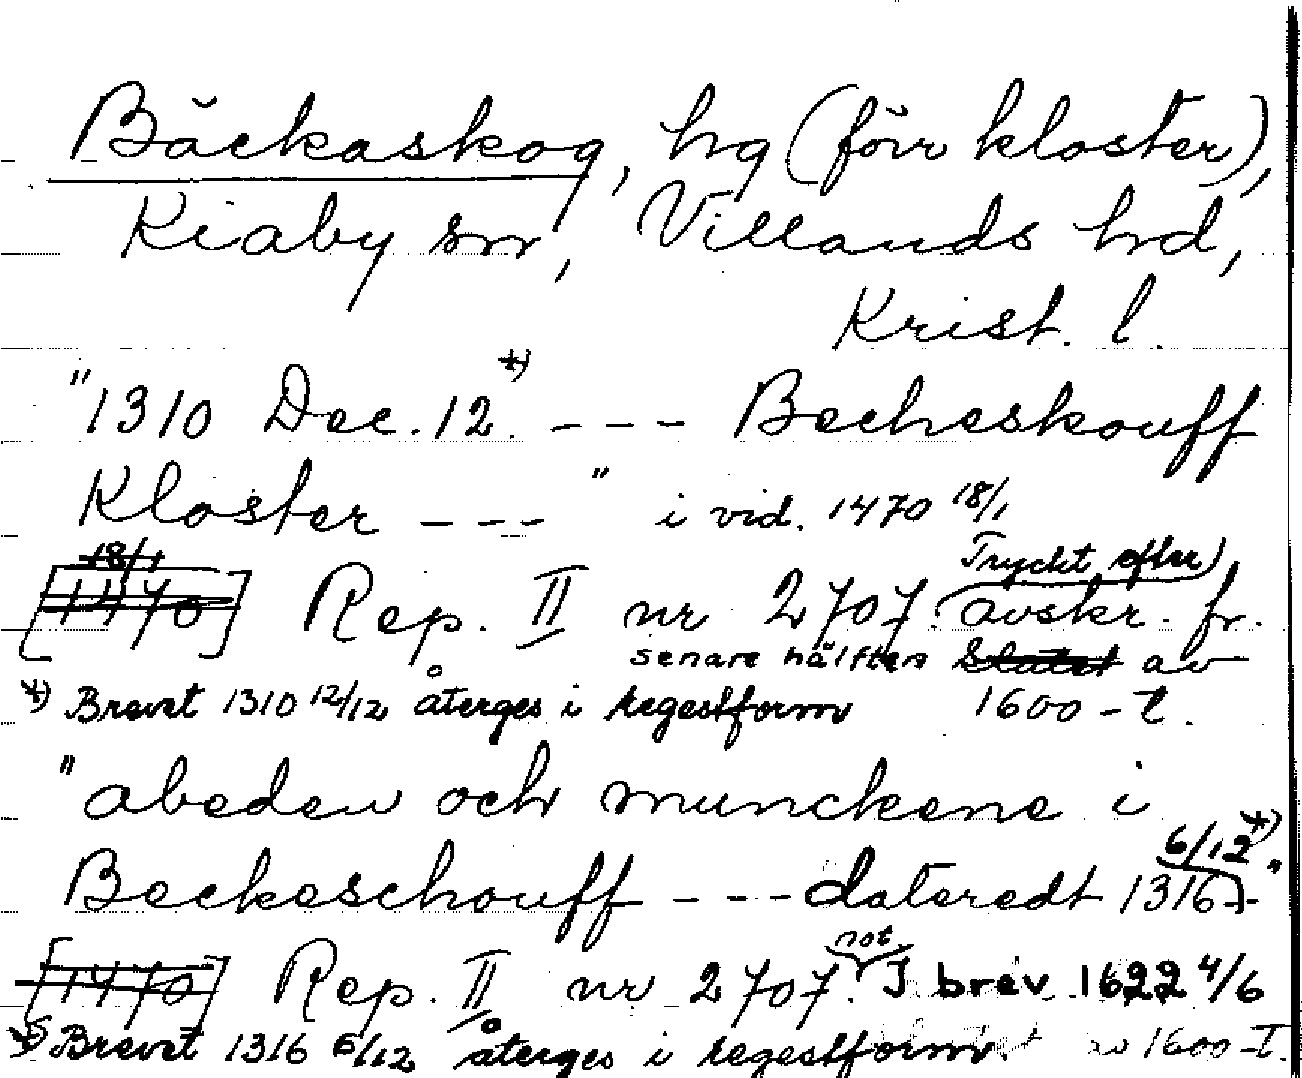 Bäckaskog, hg (förr kloster),
Kiaby sn, Villands hd,
Krist. l.
"1310 Dec. 12.*) - - - Becheskouff
Kloster - - - " i vid. 1470 18/1
[1470] 18/1 Rep. II nr 2707. (Tryckt efter) avskr. fr.
senare hälften slutet av
1600-t.
*) Brevet 1310 12/12 återges i regestform
"abeden och munckene i
Beckeschouff - - - dateredt 1316 6/12 *)"
[1470] Rep. II nr 2707. not I brev 1622 4/6
*) Brevet 1316 6/12 återges i regestform 1600-t.